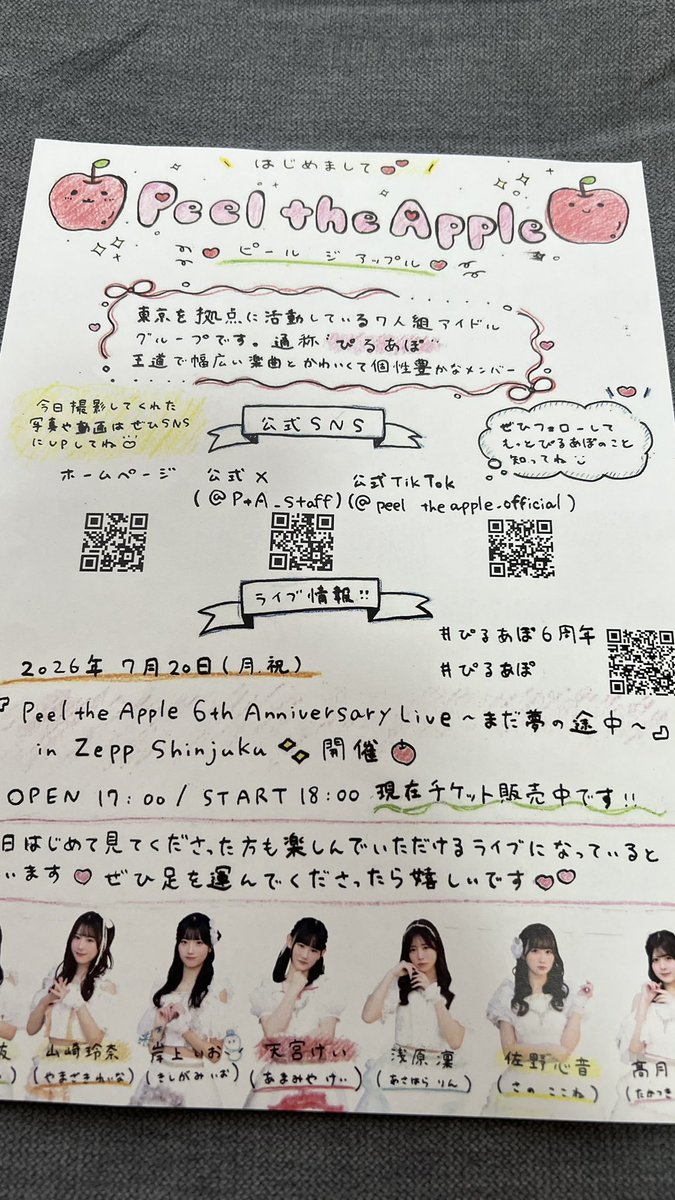 はじめまして
Peel the Apple
ピール ジ アップル
東京を拠点に活動している7人組アイドル
グループです。通称 ぴるあぽ
王道で幅広い楽曲とかわいくて個性豊かなメンバー
今日撮影してくれた
写真や動画はぜひSNS
にUPしてね
公式SNS
ぜひフォローして
もっとぴるあぽのこと
知ってね
ホームページ
公式X
(@PtA_staff)
公式TikTok
(@peel the apple_official)
ライブ情報!!
#ぴるあぽ6周年
#ぴるあぽ
2026年 7月20日(月.祝)
『Peel the Apple 6th Anniversary Live ~まだ夢の途中~』
in Zepp Shinjuku 開催
OPEN 17:00 / START 18:00 現在チケット販売中です!!
日はじめて見てくださった方も楽しんでいただけるライブになっていると
います ぜひ足を運んでくださったら嬉しいです
山崎玲奈
(やまざき れいな)
岸上いお
(きしがみ いお)
天宮けい
(あまみや けい)
浅原凜
(あさはら りん)
佐野心音
(さの ここね)
髙月
(たかつき